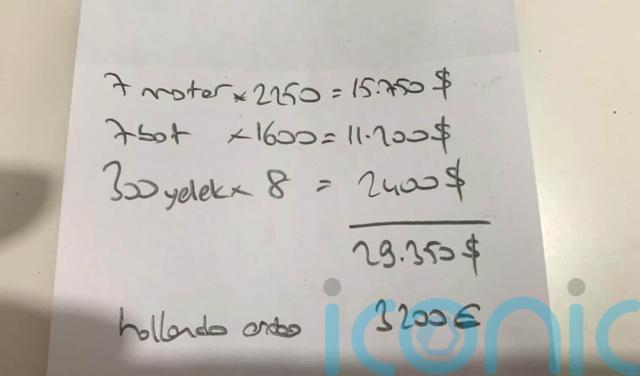 7 motor x 2250 = 15.750 $
7 bot x 1600 = 11.200 $
300 yelek x 8 = 2400 $
29.350 $
hollanda 3200 €
iconic